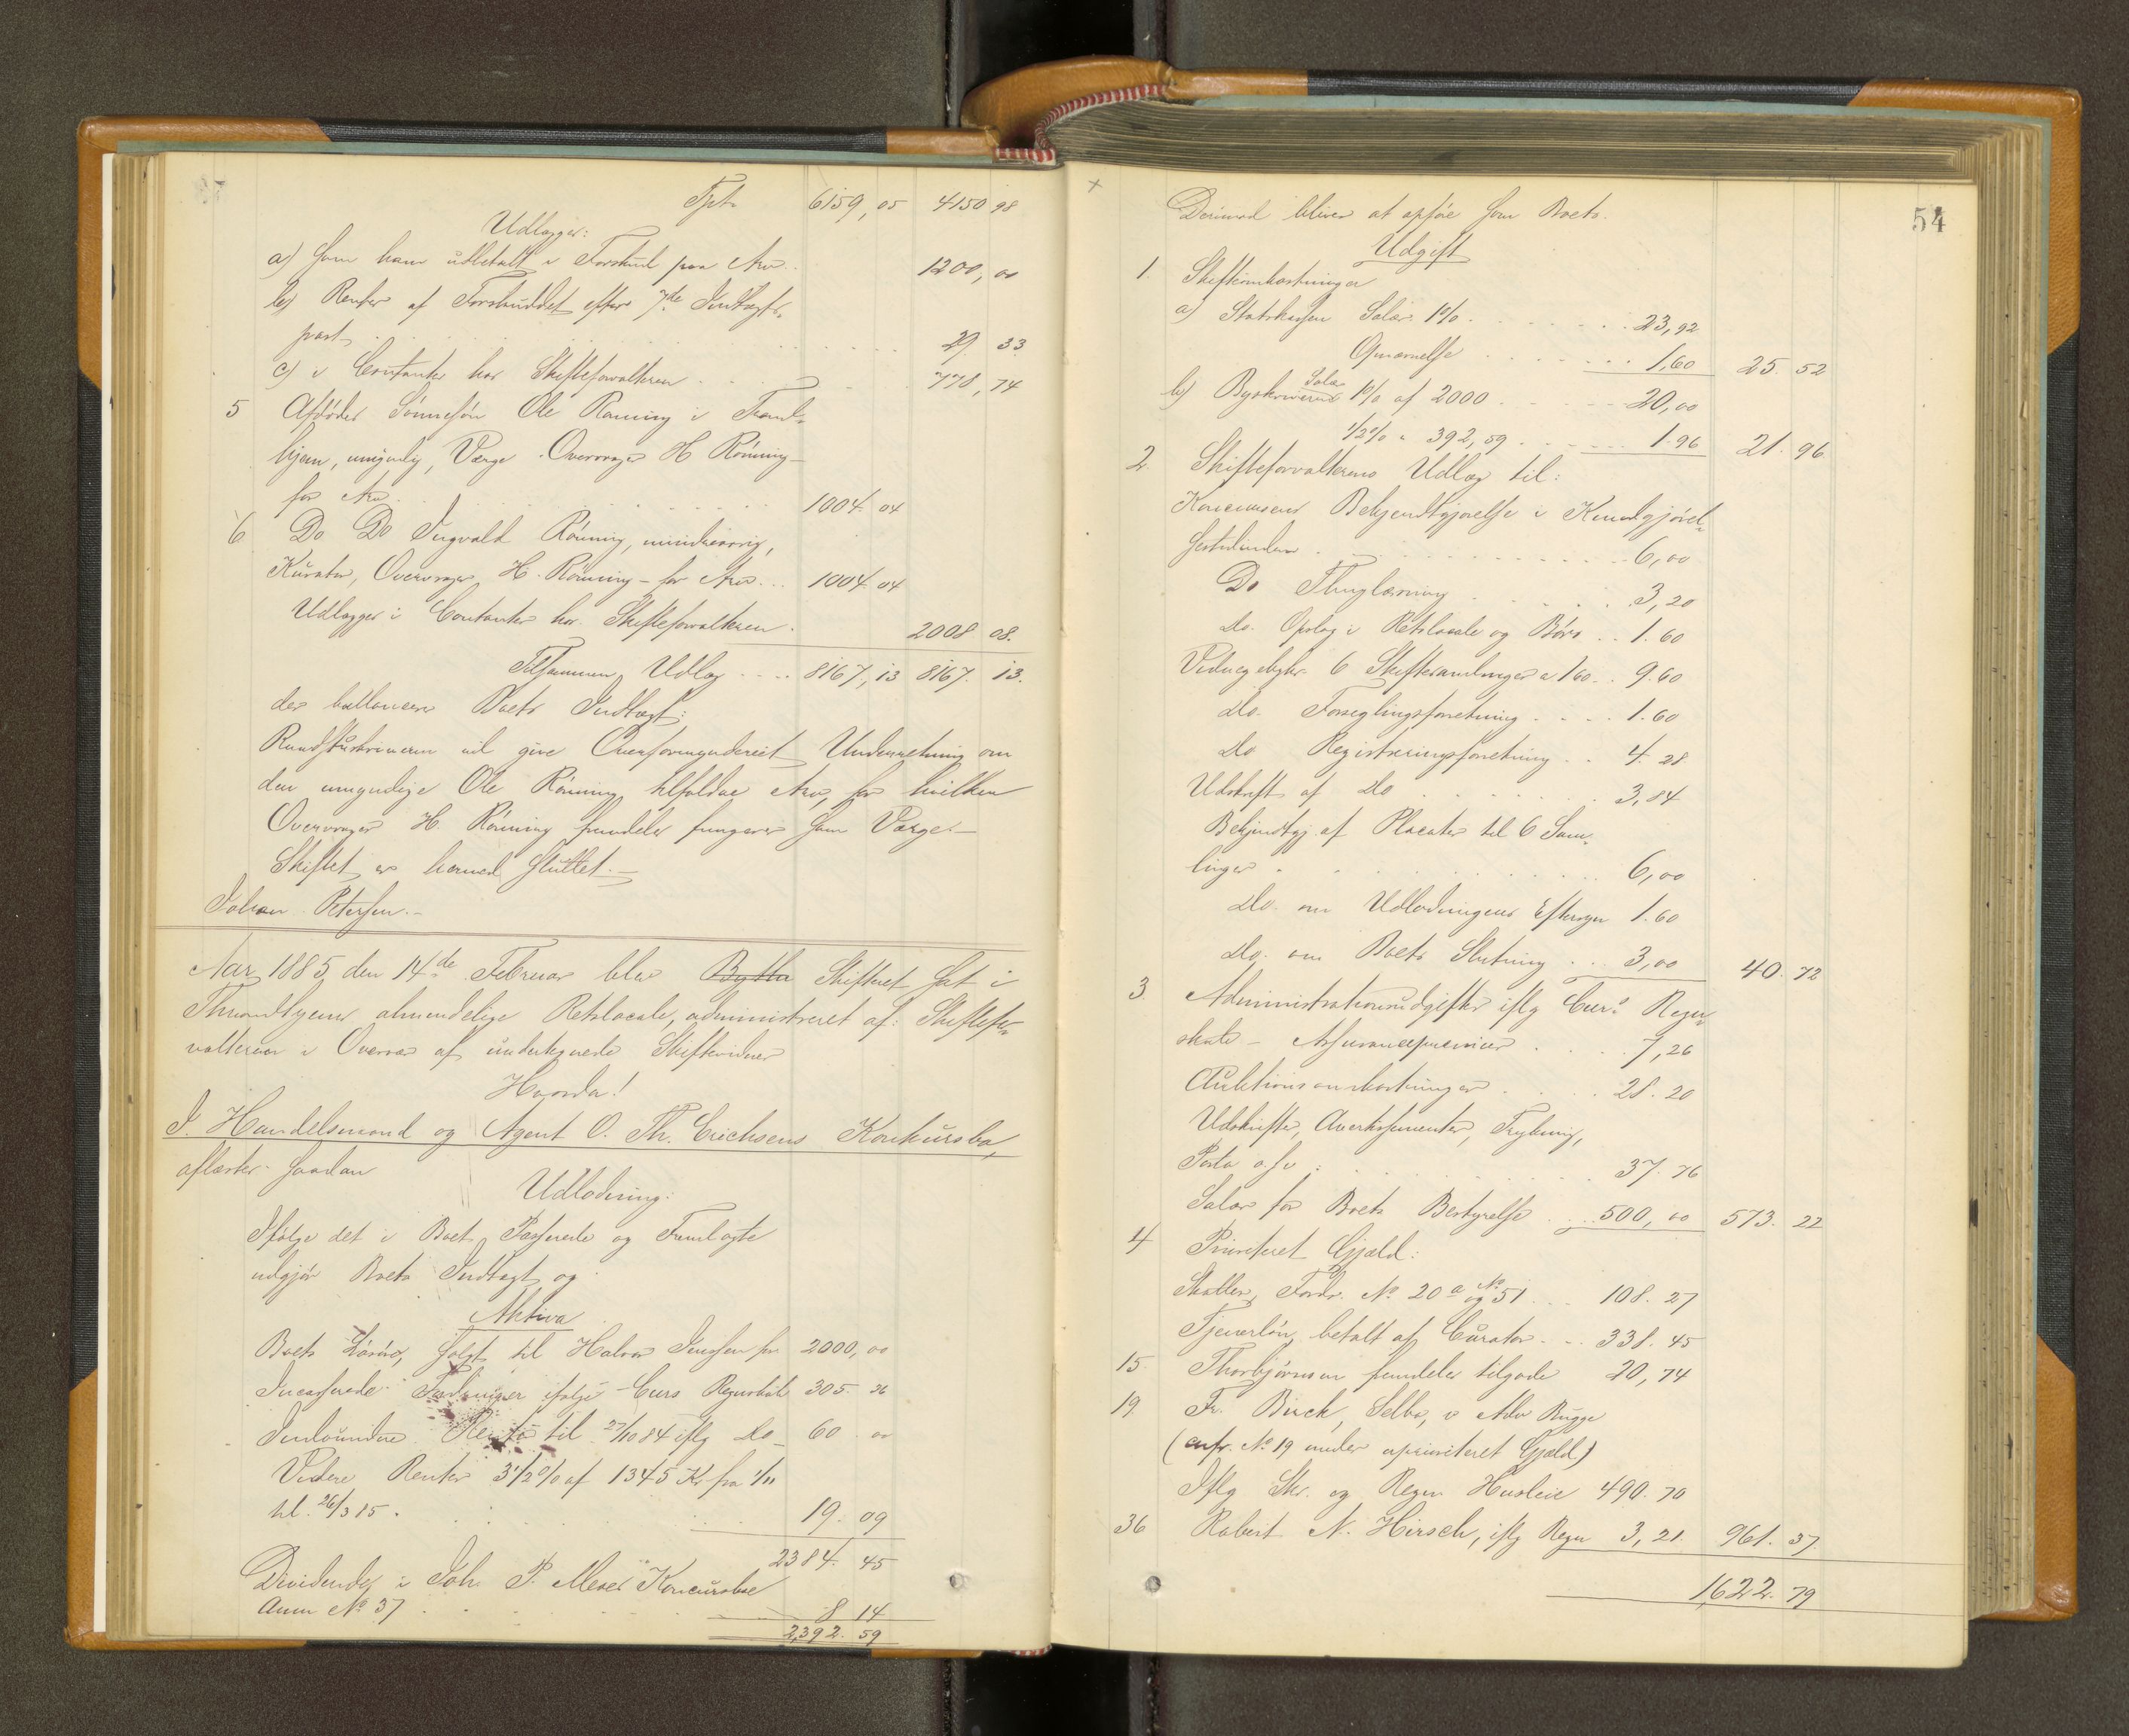 Tpt. 6159,05 4150 98
Udlægges:
a) som ham udbetalt i Forskud paa Arv. 1200,00
b) Renter af Forskuddet efter 7de Indtægts-
post 29 33
c) i Contanter hos Skifteforvalteren 778,74
5 Afdødes Sønnesøn Ole Rønning i Trond-
hjem, umyndig, Værge Overvrager H Rønning -
for Arv 1004. 04
6 Do Do Ingvald Rønning, mindreaarig,
Kurator, Overvrager H. Rønning - for Arv ... 1004. 04
Udlægges i Contanter hos Skifteforvalteren. 2008 08.
Tilsammen Udlæg .... 8167,13 8167. 13.
der ballancerer Boets Indtægt.
vil give Overformynderiet Underretning om
den umyndige Ole Rønning tilfaldne Arv, for hvilken
Overvrager H. Rønning fremdeles fungerer som Værge. -
Skiftet er hermed sluttet. -
Johan Petersen. -
Aar 1885 den 14de Februar blev Bythi Skifteret sat i
Throndhjems almindelige Retslocale, administreret af: Skiftefor-
valteren i Overvær af undertegnede Skiftevidner
Hvorda!
I. Handelsmand og Agent O. Th. Erichsens Konkursbo,
aflæstes saadan
Udlodning:
Ifølge det i Boet Passerede og Fremlagte
udgjør Boets Indtægt og
Aktiva
Boets Løsøre, solgt til Halvor Jenssen for 2000,00
Incasserede Fordringer ifølge Curs Regnskab 305. 36
Indvundne Renter til 27/10 84 iflg Do - 60. 00
Videre Renter 3 1/2 % af 1345 Kr fra 1/11
til 26/3 85. 19. 09
2384. 45
Dividende i Joh. P. Konkursbo
Anm No 37 8 14
2,392. 59
54
Derimod bliver at opføre som Boets.
Udgift
1. Skifteomkostninger
a) Statskassen Salær 1% 23,92
1,60 25. 52
b) Byskriverens Salær 1% af 2000 20,00
1/2 % " 392,59 1.96 21. 96
2. Skifteforvalterens Udlæg til:
Koncursens Bekjendtgjørelse i Kundgjørel-
sestidende 6,00
Do Thinglæsning 3,20
do. Opslag i Retslocale og Børs .. 1.60
6 Skiftesamlinger a 1 60 .. 9.60
do. Forseglingsforretning .... 1.60
do Registreringsforretning .. 4. 28
Udskrift af do 3,84
Bekjendtgj. af Placater til 6 Sam-
linger 6,00
do. om Udlodningens Eftersyn 1.60
do. om Boets Slutning ... 3,00 40. 72
3 Administrationsudgifter iflg Curs Regn-
skab - Assurancepræmier 7,26
Auktionsomkostninger 28. 20
Udskrifter, Avertissementer, Trykning,
Porto osv: 37. 76
Salær for Boets Bestyrelse ... 500,00 573. 22
4 Prioriteret Gjæld:
Skatter, Fordr. No 20 a og No 51 108. 27
Tjenerløn betalt af Curator .. 338. 45
15. Thorbjørnsen fremdeles tilgode 20,74
19 Fr. Birch, Selbo, v Adv Bugge
(cnfr. No 19 under uprioriteret Gjæld)
Iflg Skr. og Regn Husleie 490. 70
36 Robert N. Hirsch, iflg Regn 3,21. 961. 37
1622. 79